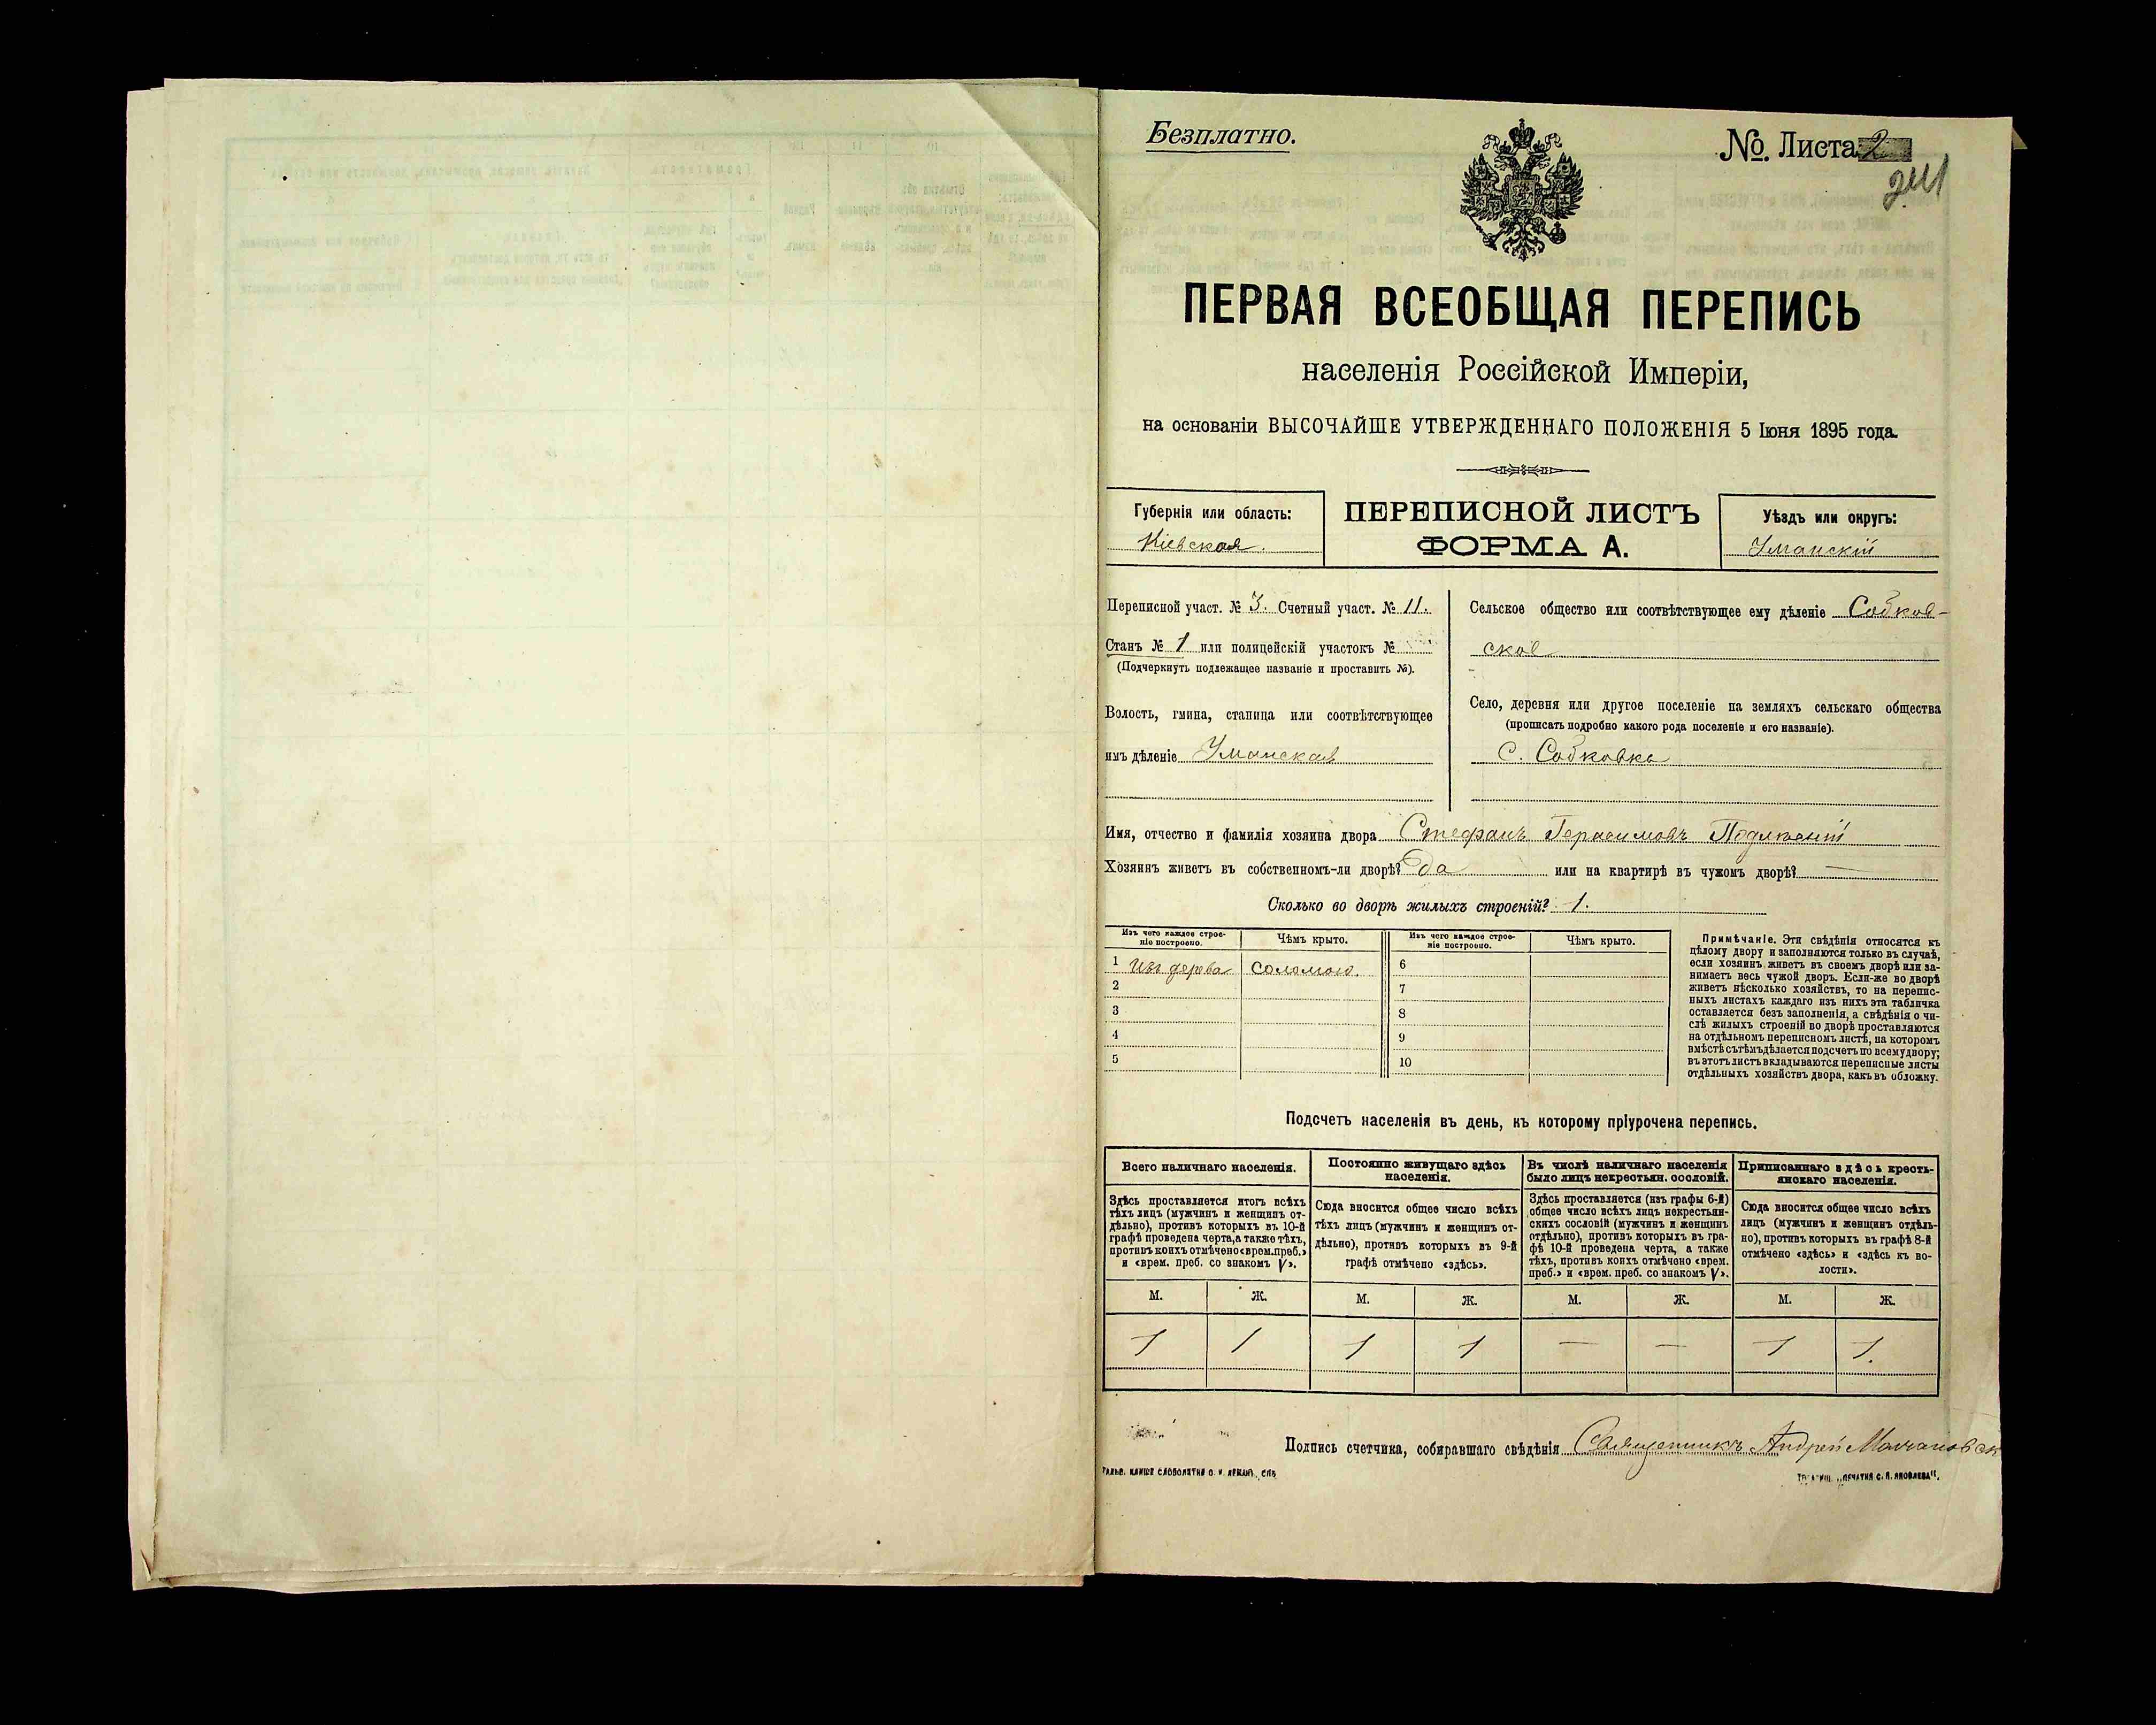 Безплатно.
№. Листа 2
241
ПЕРВАЯ ВСЕОБЩАЯ ПЕРЕПИСЬ
населенія Россійской Имперіи,
на основаніи ВЫСОЧАЙШЕ УТВЕРЖДЕННАГО ПОЛОЖЕНІЯ 5 Іюня 1895 года.
Губернія или область:
Кіевская.
ПЕРЕПИСНОЙ ЛИСТЪ
ФОРМА А.
Уѣздъ или округъ:
Уманскій
Переписной участ. № 3. Счетный участ. № 11.
Станъ № 1 или полицейскій участокъ №
(Подчеркнуть подлежащее названіе и проставить №).
Волость, гмина, станица или соотвѣтствующее
имъ дѣленіе Уманская
Сельское общество или соотвѣтствующее ему дѣленіе Собков-
ское
Село, деревня или другое поселеніе на земляхъ сельскаго общества
(прописать подробно какого рода поселеніе и его названіе).
с. Собковка
Имя, отчество и фамилія хозяина двора Стефанъ Герасимовъ
Хозяинъ живетъ въ собственномъ-ли дворѣ? да или на квартирѣ въ чужомъ дворѣ? —
Сколько во дворѣ жилыхъ строеній? 1.
Изъ чего каждое строе-
ніе построено.
Чѣмъ крыто.
Изъ чего каждое строе-
ніе построено.
Чѣмъ крыто.
1 Изъ дерева соломою. 6
2 7
3 8
4 9
5 10
Примѣчаніе. Эти свѣдѣнія относятся къ
цѣлому двору и заполняются только въ случаѣ,
если хозяинъ живетъ въ своемъ дворѣ или за-
нимаетъ весь чужой дворъ. Если-же во дворѣ
живетъ нѣсколько хозяйствъ, то на перепис-
ныхъ листахъ каждаго изъ нихъ эта табличка
оставляется безъ заполненія, а свѣдѣнія о чи-
слѣ жилыхъ строеній во дворѣ проставляются
на отдѣльномъ переписномъ листѣ, на которомъ
вмѣстѣ съ тѣмъ дѣлается подсчетъ по всему двору;
въ этотъ листъ вкладываются переписные листы
отдѣльныхъ хозяйствъ двора, какъ въ обложку.
Подсчетъ населенія въ день, къ которому пріурочена перепись.
Всего наличнаго населенія.
Здѣсь проставляется итогъ всѣхъ
тѣхъ лицъ (мужчинъ и женщинъ от-
дѣльно), противъ которыхъ въ 10-й
графѣ проведена черта, а также тѣхъ,
противъ коихъ отмѣчено «врем. преб.»
и «врем. преб. со знакомъ V».
Постоянно живущаго здѣсь
населенія.
Сюда вносится общее число всѣхъ
тѣхъ лицъ (мужчинъ и женщинъ от-
дѣльно), противъ которыхъ въ 9-й
графѣ отмѣчено «здѣсь».
Въ числѣ наличнаго населенія
было лицъ некрестьян. сословій.
Здѣсь проставляется (изъ графы 6-й)
общее число всѣхъ лицъ некрестьян-
скихъ сословій (мужчинъ и женщинъ
отдѣльно), противъ которыхъ въ гра-
фѣ 10-й проведена черта, а также
тѣхъ, противъ коихъ отмѣчено «врем.
преб.» и «врем. преб. со знакомъ V».
Приписаннаго здѣсь кресть-
янскаго населенія.
Сюда вносится общее число всѣхъ
лицъ (мужчинъ и женщинъ отдѣль-
но), противъ которыхъ въ графѣ 8-й
отмѣчено «здѣсь» и «здѣсь къ во-
лости».
М. Ж. М. Ж. М. Ж. М. Ж.
1 1 1 1 — — 1 1.
Подпись счетчика, собиравшаго свѣдѣнія Священникъ Андрей